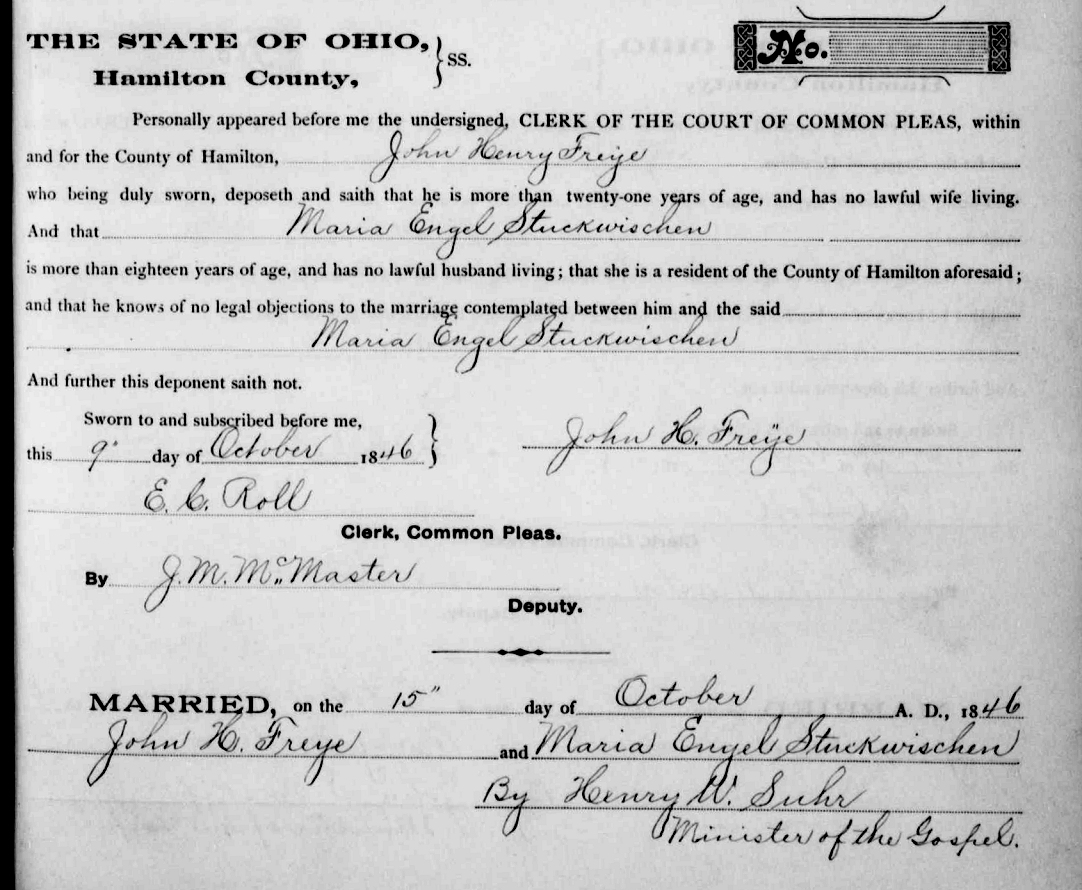 THE STATE OF OHIO, } SS. No.
Hamilton County,
Personally appeared before me the undersigned, CLERK OF THE COURT OF COMMON PLEAS, within
and for the County of Hamilton, John Henry Freye
who being duly sworn, deposeth and saith that he is more than twenty-one years of age, and has no lawful wife living.
And that Maria Engel Stuckwischen
is more than eighteen years of age, and has no lawful husband living; that she is a resident of the County of Hamilton aforesaid;
and that he knows of no legal objections to the marriage contemplated between him and the said
Maria Engel Stuckwischen
And further this deponent saith not.
Sworn to and subscribed before me, }
this 9" day of October 1846 John H. Freye
E. C. Roll
Clerk, Common Pleas.
By J. M. McMaster
Deputy.
MARRIED, on the 15" day of October A. D., 1846
John H. Freye and Maria Engel Stuckwischen
By Henry W. Suhr
Minister of the Gospel.